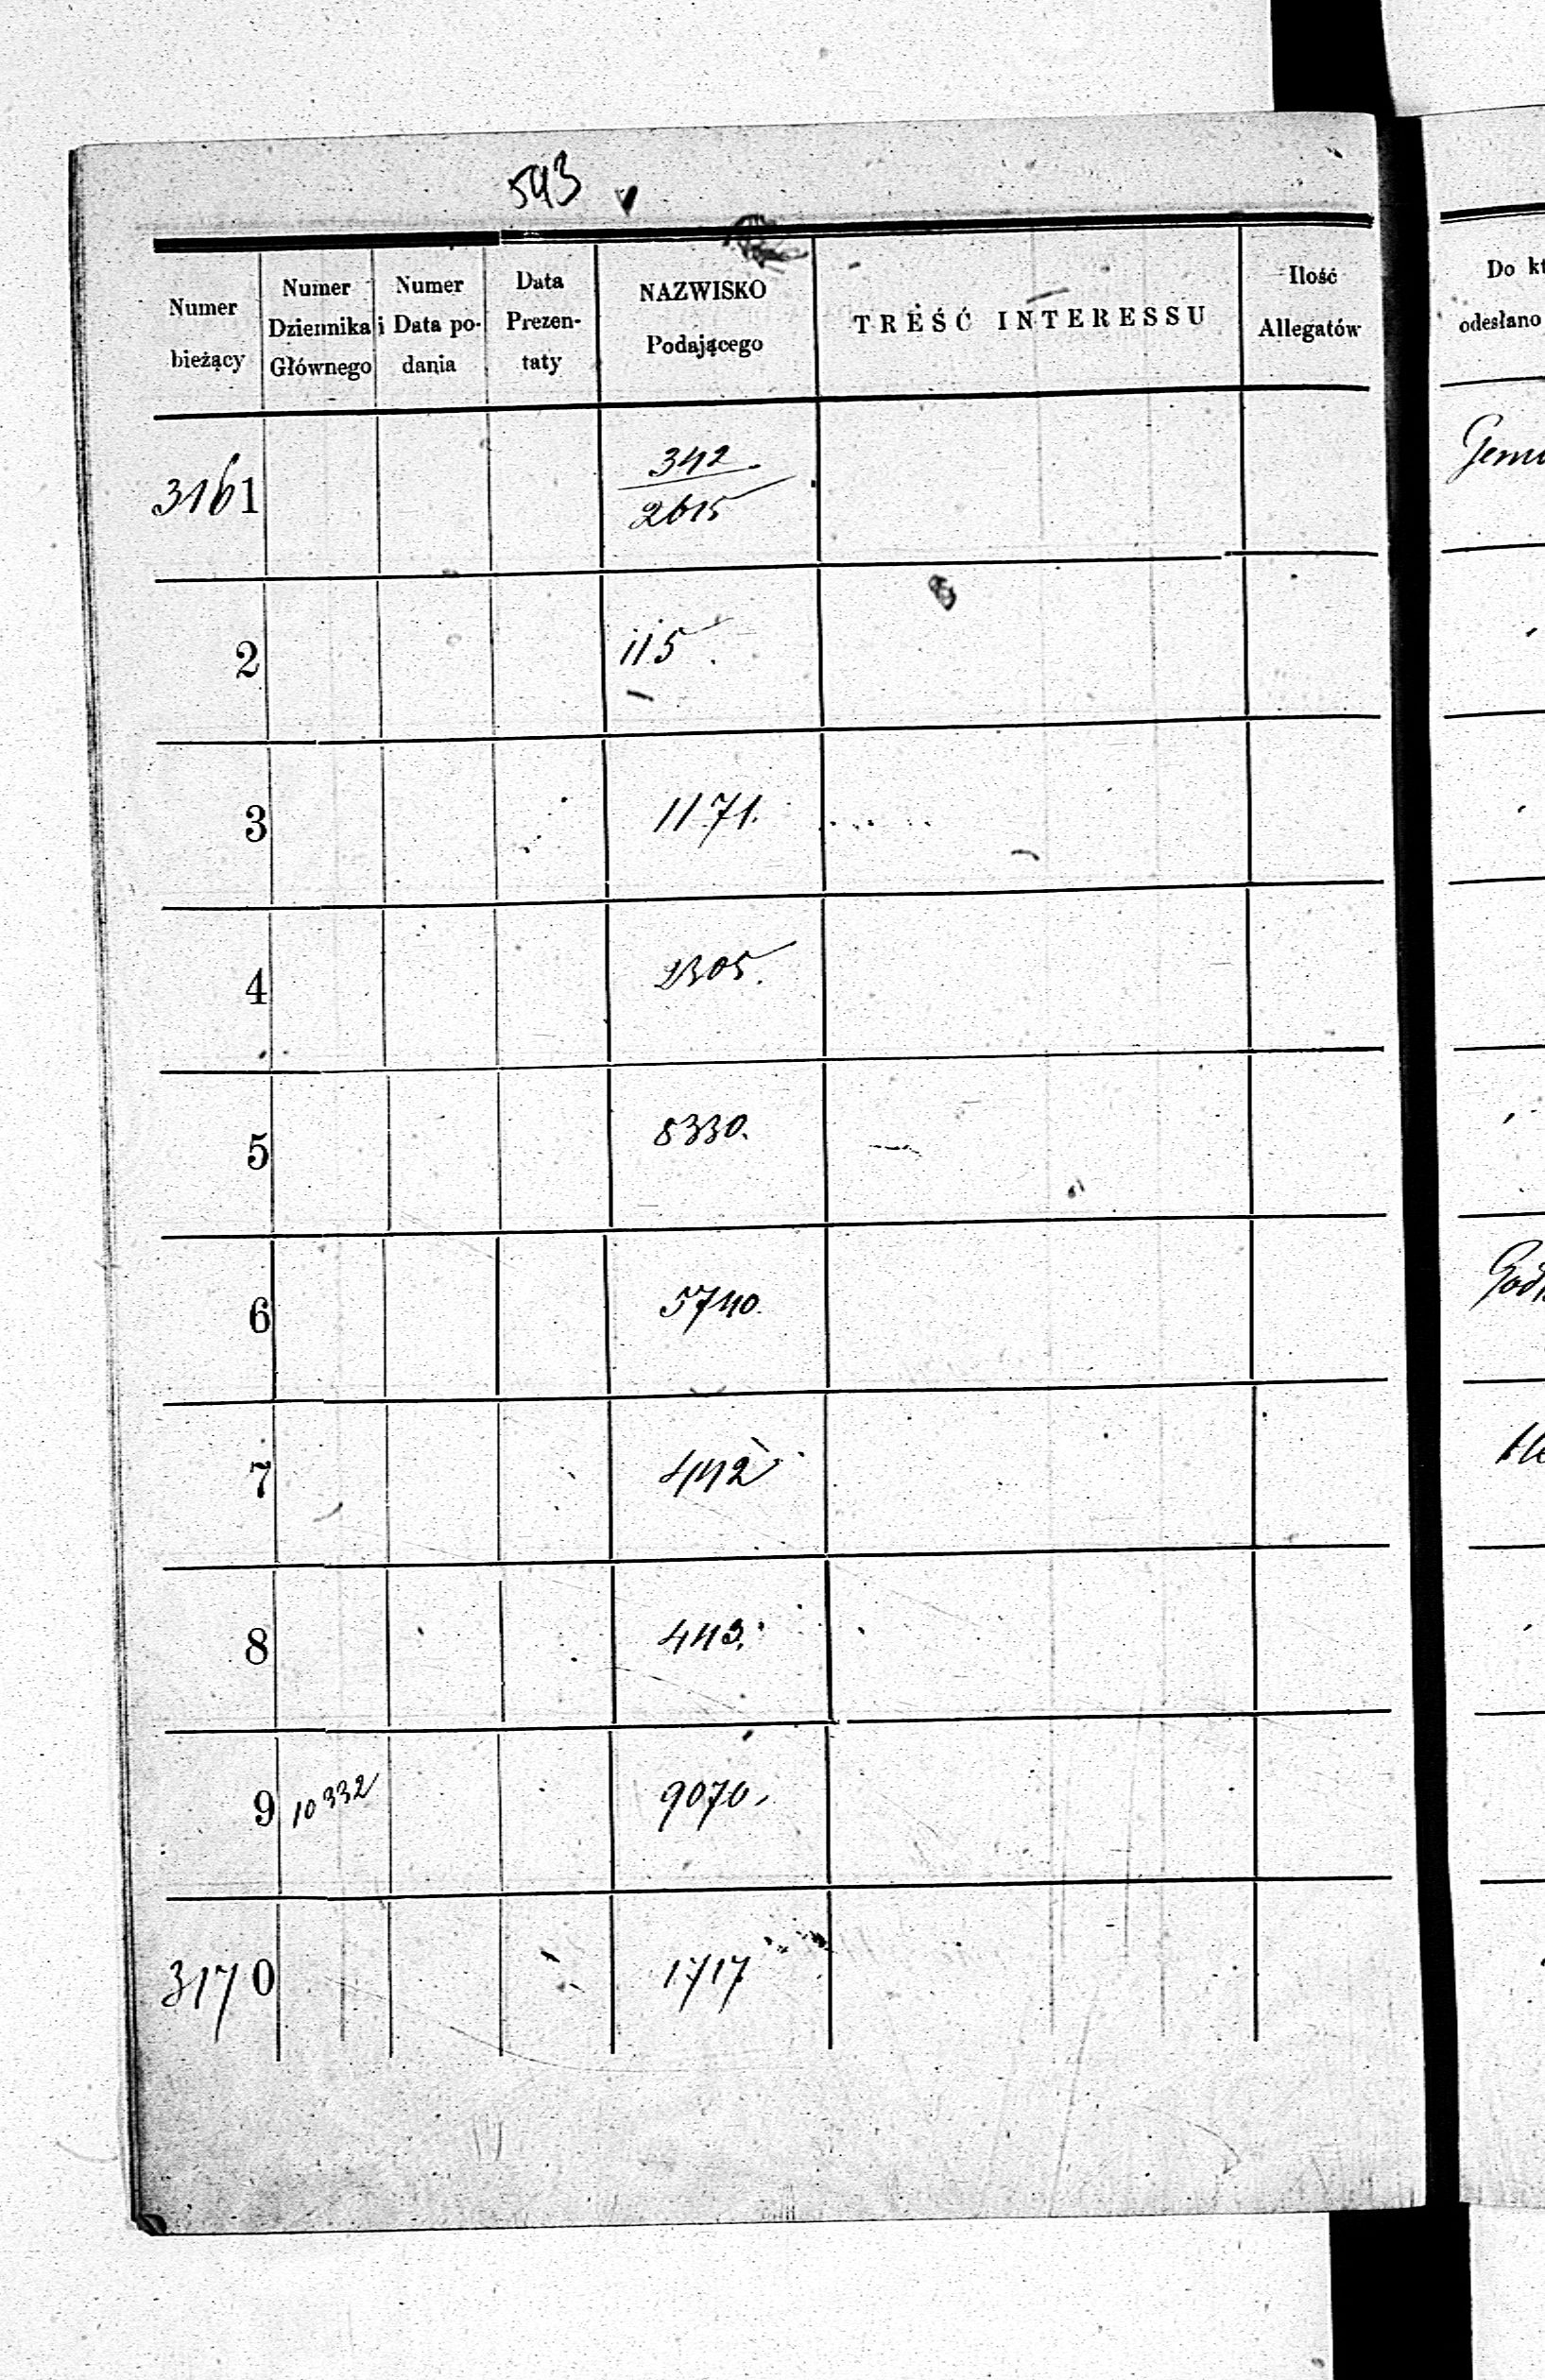 543
Numer bieżący | Numer Dziennika Głównego | Numer i Data podania | Data Prezentaty | NAZWISKO Podającego | TREŚĆ INTERESSU | Ilość Allegatów
Do kt
odesłano
3161 342/2615
2 115
3 1171.
4 2305.
5 8330.
6 5740.
7 442
8 443.
9 10332 9070.
3170 1717